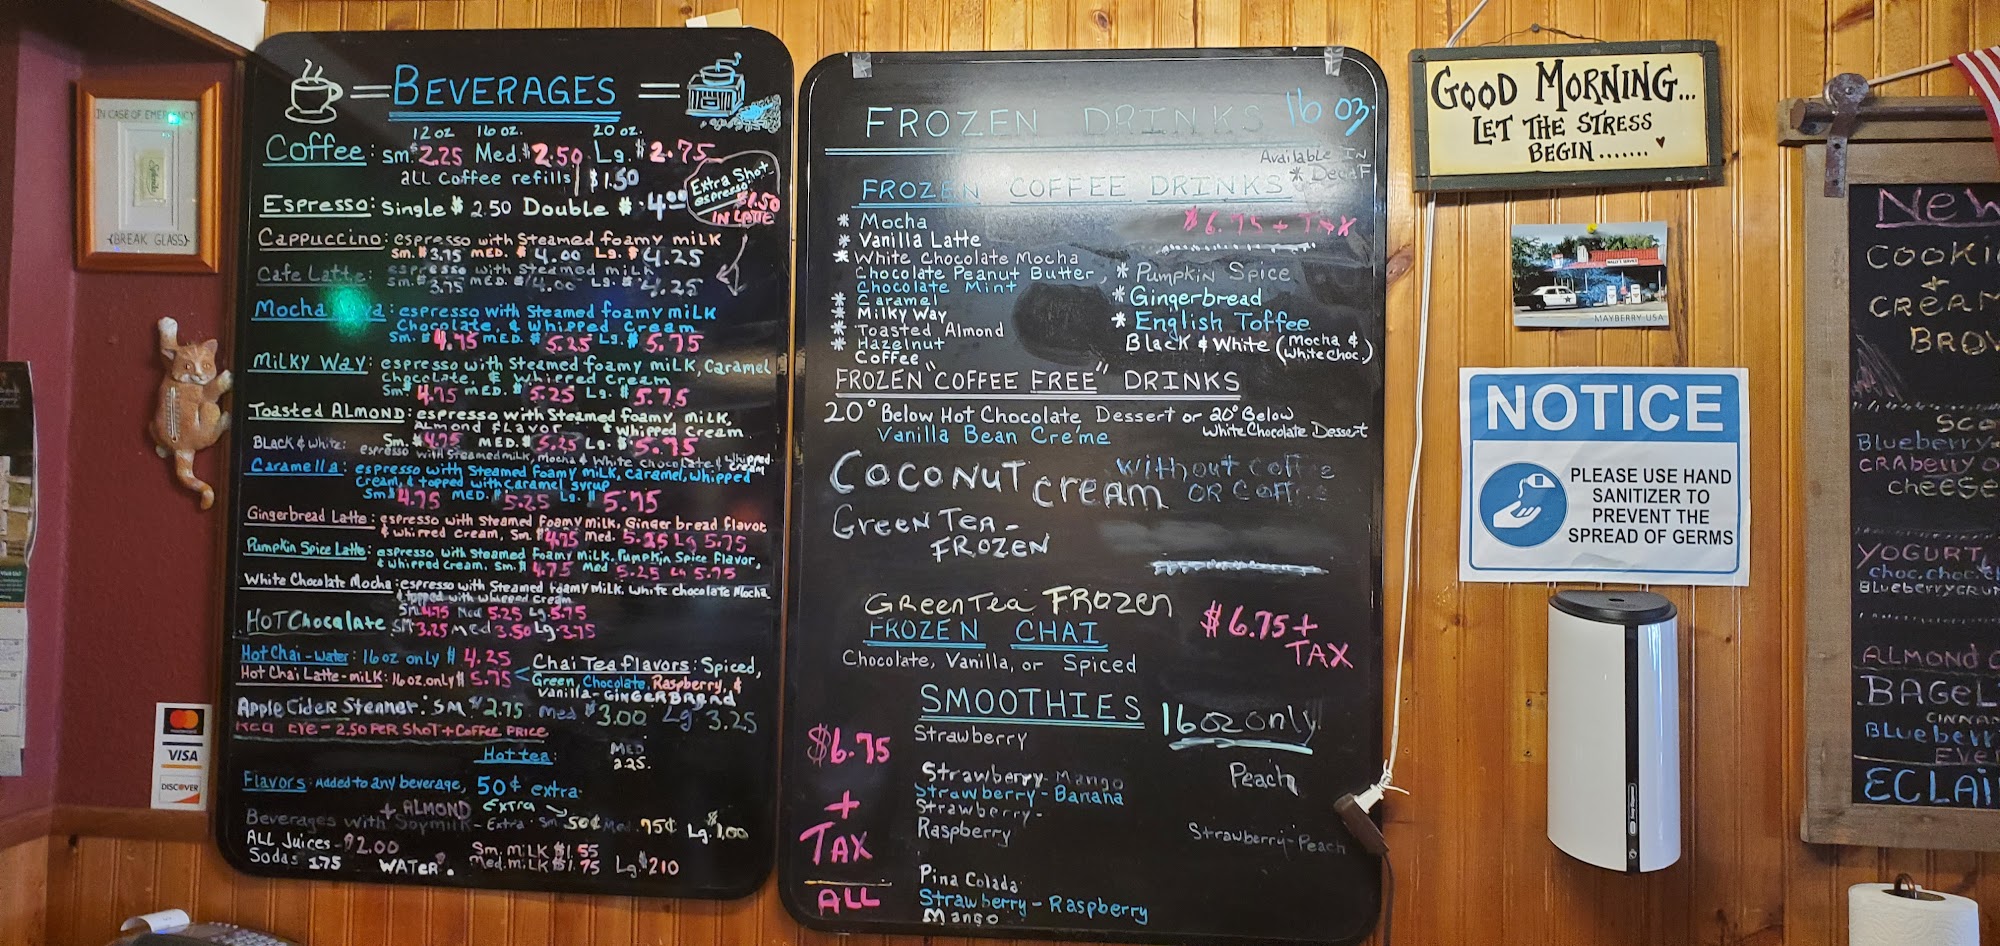 IN CASE OF EMERGENCY
{BREAK GLASS}
BEVERAGES
12 oz 16 oz. 20 oz.
Coffee: Sm. $2.25 Med. $2.50 Lg. $2.75
all Coffee refills $1.50
Extra Shot espresso $1.50
IN LATTE
Espresso: Single $2.50 Double $4.00
Cappuccino: espresso with Steamed foamy milk
Sm. $3.75 MED. $4.00 Lg. $4.25
Cafe Latte: espresso with Steamed milk
Sm. $3.75 MED. $4.00 Lg. $4.25
Mocha Java: espresso with Steamed foamy milk
Chocolate, & Whipped Cream
Sm. $4.75 MED. $5.25 Lg. $5.75
Milky Way: espresso with Steamed foamy milk, Caramel
Chocolate, & Whipped Cream
Sm. $4.75 MED. $5.25 Lg. $5.75
Toasted Almond: espresso with Steamed foamy milk,
Almond flavor & Whipped Cream
Sm. $4.75 MED. $5.25 Lg. $5.75
Black & White: espresso with Steamed milk, Mocha & White Chocolate & Whipped Cream
Caramella: espresso with Steamed foamy milk, Caramel, Whipped
Cream, & topped with Caramel Syrup
Sm $4.75 MED. $5.25 Lg. $5.75
Gingerbread Latte: espresso with Steamed foamy milk, Ginger bread flavor,
& whipped cream, Sm. $4.75 Med. 5.25 Lg 5.75
Pumpkin Spice Latte: espresso with Steamed foamy milk, Pumpkin Spice Flavor,
& whipped cream. Sm. $4.75 Med 5.25 LG 5.75
White Chocolate Mocha: espresso with Steamed foamy milk, White chocolate Mocha
& topped with whipped cream
Sm 4.75 Med 5.25 Lg 5.75
Hot Chocolate Sm 3.25 Med 3.50 Lg 3.75
Hot Chai-Water: 16oz only $4.25
Hot Chai Latte-milk: 16oz.only $5.75
Chai Tea flavors: Spiced,
Green, Chocolate, Raspberry, &
Vanilla-GINGERBREAD
Apple Cider Steamer: SM $2.75 Med $3.00 Lg 3.25
Red Eye-2.50 PER SHOT + Coffee PRICE
Hot tea: MED. 2.25.
Flavors: Added to any beverage, 50¢ extra.
+ ALMOND Extra
Beverages with Soymilk-Extra Sm. 50¢ Med. 75¢ Lg. 1.00
ALL Juices-$2.00
Sm. milk $1.55
Sodas 1.75 WATER. Med.milk $1.75 Lg $2.10
FROZEN DRINKS 16 oz.
Available In
* Decaf
FROZEN COFFEE DRINKS
* Mocha
$6.75 + TAX
* Vanilla Latte
* White Chocolate Mocha
Chocolate Peanut Butter,
Chocolate Mint
* Caramel
* Milky Way
* Toasted Almond
* Hazelnut
Coffee
* Pumpkin Spice
* Gingerbread
* English Toffee
Black & White (Mocha & White Choc.)
FROZEN "COFFEE FREE" DRINKS
20° Below Hot Chocolate Dessert or 20° Below
White Chocolate Dessert
Vanilla Bean Créme
COCONUT CREAM without coffee
OR Coffee
Green Tea-
FROZEN
Green Tea FROZEN
FROZEN CHAI
$6.75 +
TAX
Chocolate, Vanilla, or Spiced
SMOOTHIES
16oz only
$6.75
+
TAX
ALL
Strawberry
Peach
Strawberry-Mango
Strawberry-Banana
Strawberry-
Raspberry
Strawberry-Peach
Pina Colada
Strawberry-Raspberry
Mango
GOOD MORNING...
LET THE STRESS
BEGIN.......
MAYBERRY USA
NOTICE
PLEASE USE HAND
SANITIZER TO
PREVENT THE
SPREAD OF GERMS
VISA
DISCOVER
New
+
CREAM
Blueberry
cheese
YOGURT
ALMOND
BAGEL
Blueberry
ECLAI